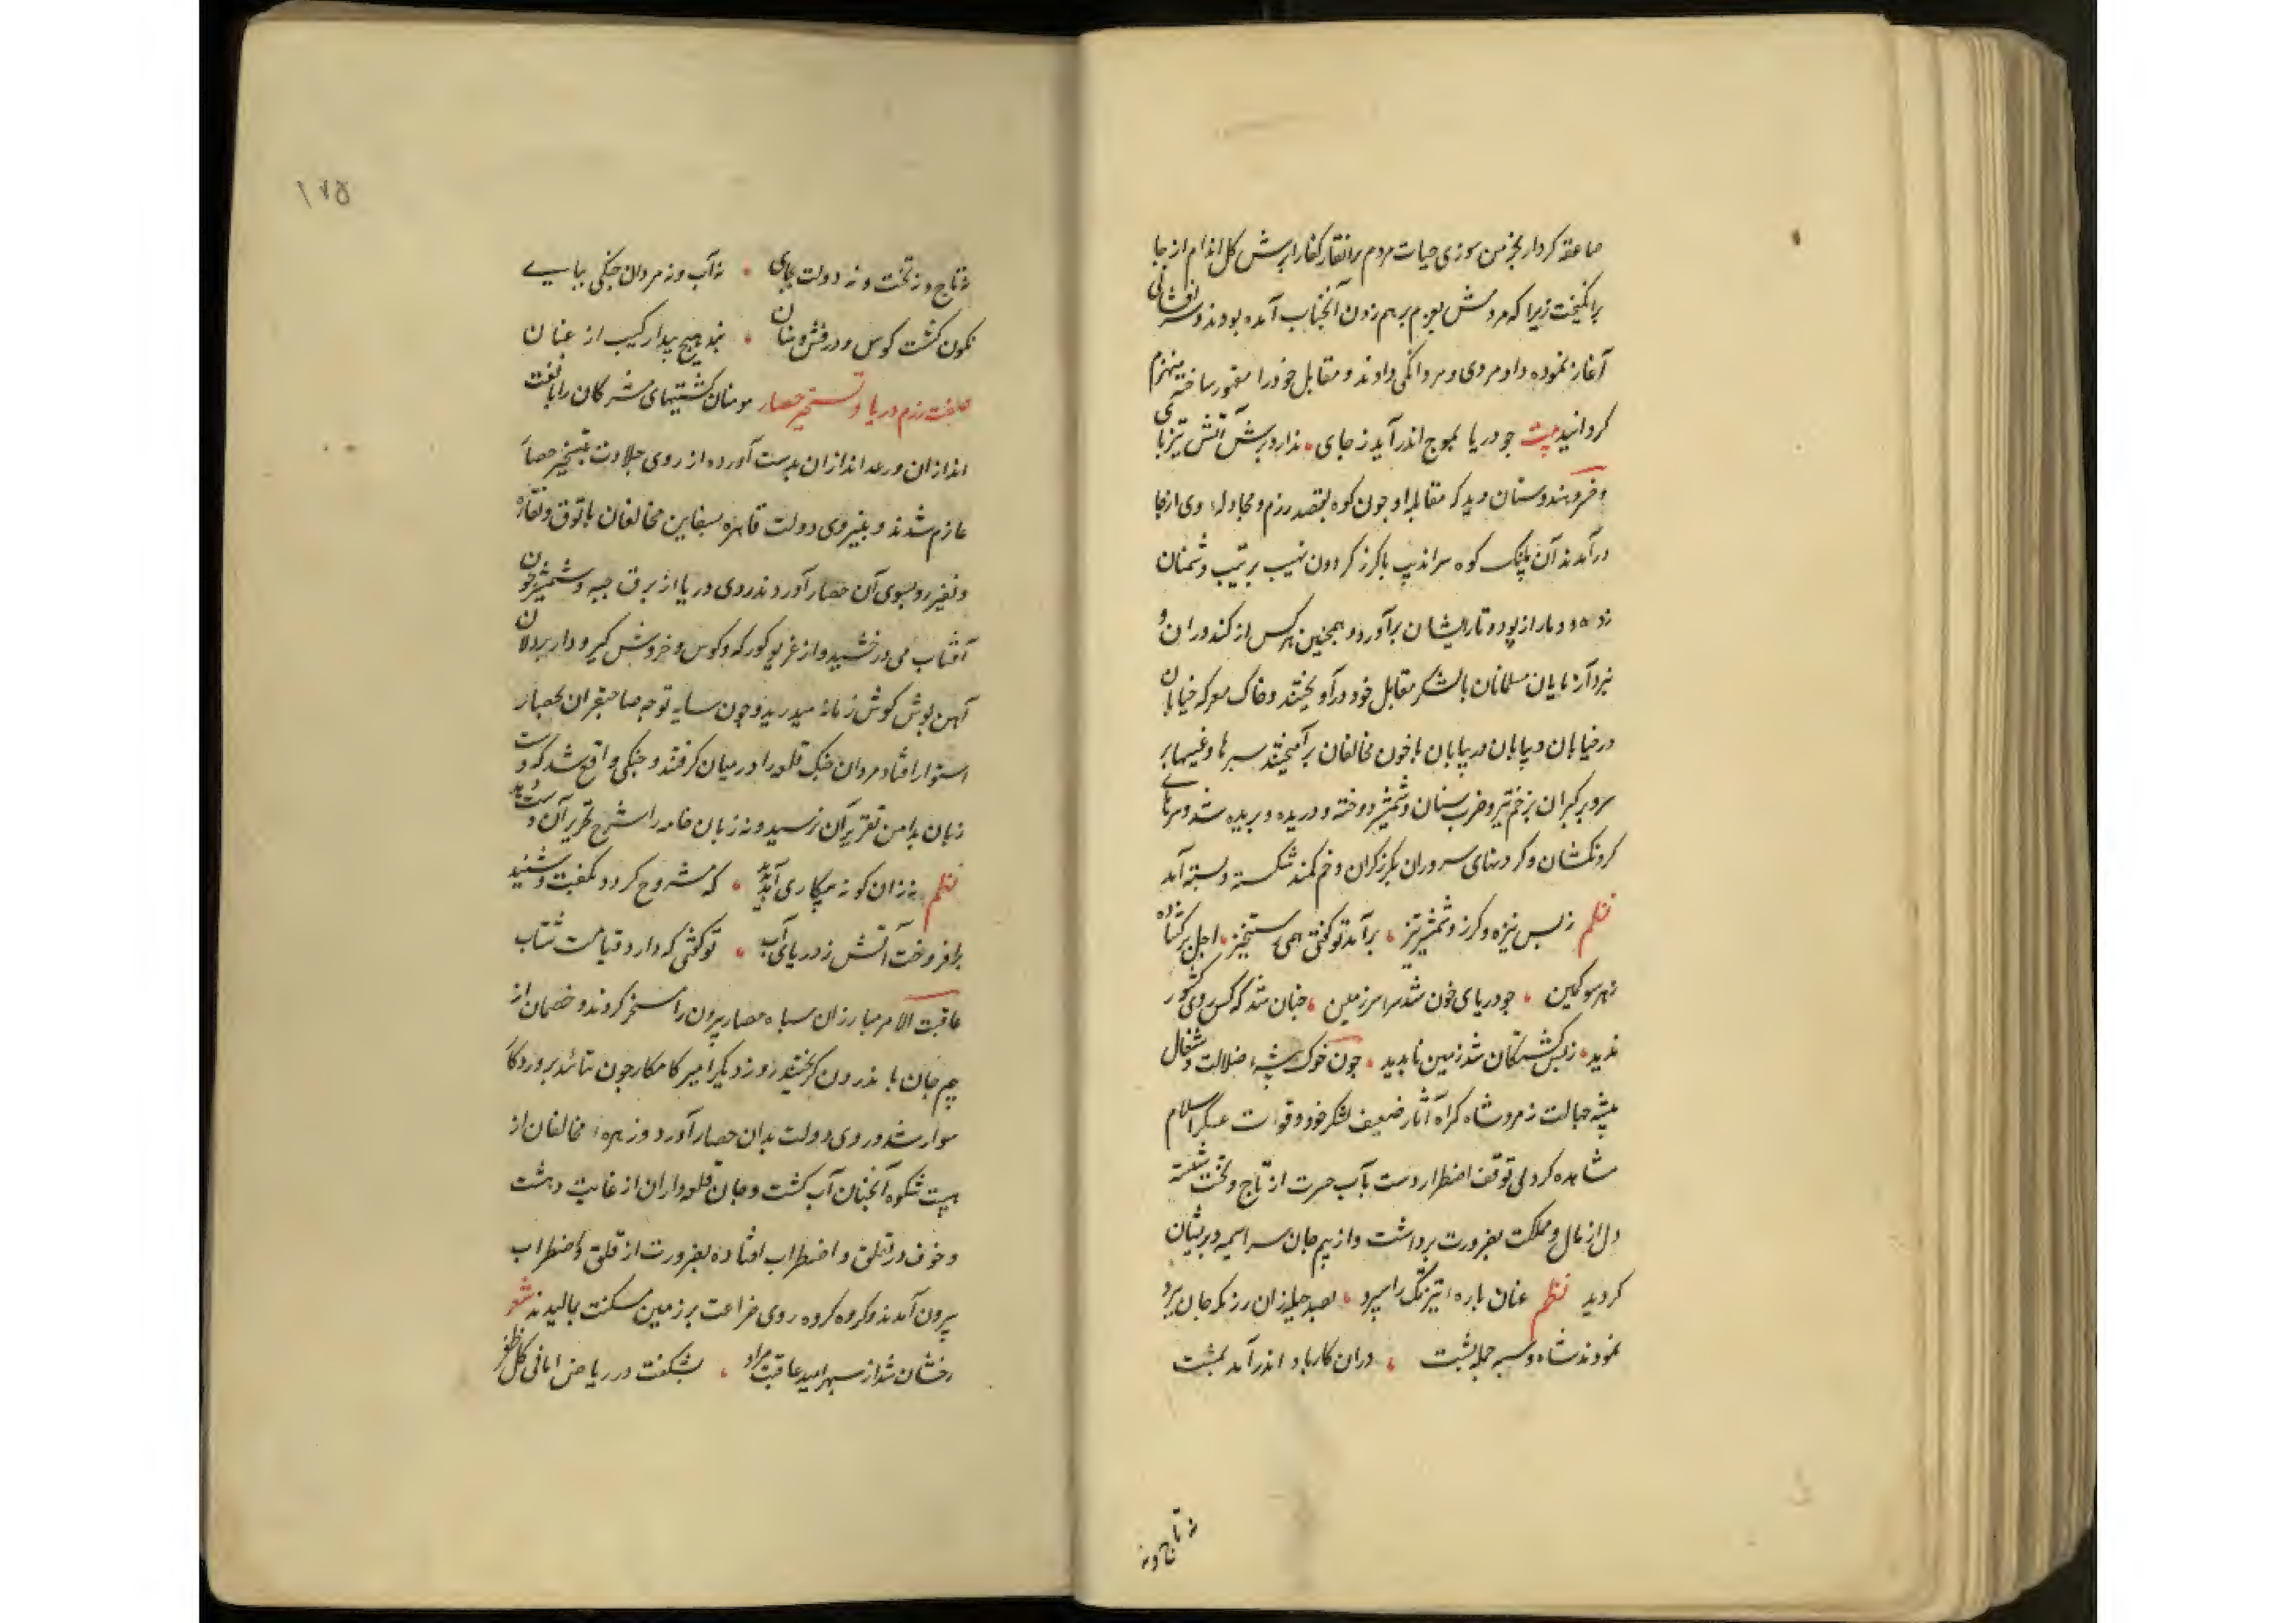 صاعقه کردار بخرمن سوزی حیات مردم برانقار کفار ابرش کل اندام از جا
برانکیخت زیرا که مردمش بعزم برهم زدن آنجناب آمده بودند و سرافشانی
آغاز نموده داد مردی و مردانکی دادند و مقابل خود را مقهور ساخته منهزم
کردانید بیت جو دریا بموج اندر آید ز جای ندارد برش آتش تیز پای
و هندوستان دید که مقابله او جون کوه بقصد رزم و مجادله وی از جا
درآمدند آن پلنک کوه سراندیب با کرز کردون نهیب بر تیپ دشمنان
زده و دمار از پود و تار ایشان برآورد و همچنین هر کس از کندوران و
نبرد آزمایان مسلمانان با لشکر مقابل خود درآویختند و خاک معرکه خیابان
در خیابان و بیابان در بیابان با خون مخالفان برآمیختند سرها و
سروبر کبران بزخم تیر و ضرب سنان و شمشیر دوخته و دریده و بریده شد و سرهای
کردنکشان و کردنهای سروران بکرز کران و خم کمند شکسته و بسته آمد
نظم ز بس نیزه و کرز و شمشیر تیز برآمد تو کفتی همی رستخیز اجل برکشاده
ز هر سو کمین جو دریای خون شد سراسر زمین جنان شد که کس روی کشور
ندید ز بس کشتکان شد زمین ناپدید جون خوک بیشه ضلالت و شغال
بیشه جهالت زمرد شاه کمراه آثار ضعف لشکر خود و قوت عسکر اسلام
مشاهده کرد بی توقف اضطرار دست بآب حسرت از تاج و تخت شسته
دل از مال و مملکت بضرورت برداشت و از بیم جان سراسیمه و پریشان
کردید نظم عنان باره تیزتک را سپرد بصد حیله زان رزمکه جان ببرد
نمودند شاه و سپه جمله پشت دران کار باد اندر آمد بمشت
نه تاج و نه
۱۷۵
نه تاج و نه تخت و نه دولت بجای نه آب و نه مردان جنکی بپای
نکون کشت کوس و درفش و سنان نبد هیچ پیدا رکیب از عنان
صفت رزم دریا و تسخیر حصار مومنان کشتیهای مشرکان را با نفت
اندازان و رعد اندازان بدست آورده از روی جلادت بتسخیر حصار
عازم شدند و بنیروی دولت قاهره بسفاین مخالفان با توق و نقاره
و نفیر رو بسوی آن حصار آوردند روی دریا از برق جبه و شمشیر چون
آفتاب می درخشید و از غریو کورکه و کوس و خروش کیر و دار پردلان
آهن پوش کوش زمانه میدرید و چون سایه توجه صاحبقران بحصار
استوار افتاد مردان جنک قلعه را در میان کرفتند و جنکی واقع شد که دست
زبان بدامن تقریر آن نرسید و نه زبان خامه را شرح تحریر آن
نظم نه زان کونه پیکاری آمد پدید که مشروح کردد بکفت و شنید
برافروخت آتش ز دریای آب تو کفتی که دارد قیامت شتاب
عاقبت الامر مبارزان سپاه حصار بیرون را مسخر کردند و خصمان از
بیم جان با ندرون کریختند روز دیکر امیر کامکار جون بتائید پروردکار
سوار شد و روی دولت بدان حصار آورد و زهره مخالفان از
هیبت شکوه آنجناب آب کشت و جان قلعه داران از غایت دهشت
و خوف در تعلق و اضطراب افتاده بضرورت از قلق و اضطراب
بیرون آمدند و کروه کروه روی ضراعت بر زمین مسکنت بمالیدند شعر
رخشان شد از سپهر امید عاقبت مراد بشکفت در ریاض امانی کل ظفر